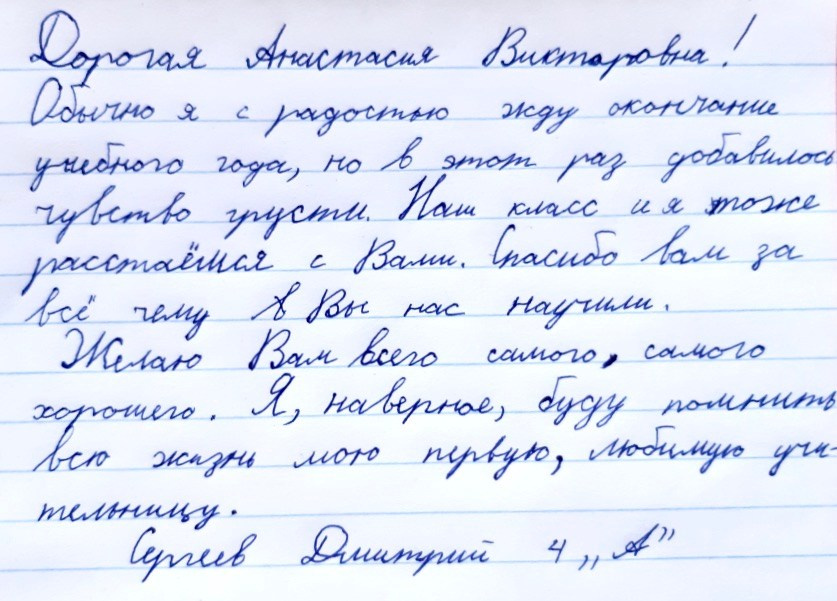 Дорогая Анастасия Викторовна!
Обычно я с радостью жду окончание
учебного года, но в этот раз добавилось
чувство грусти. Наш класс и я тоже
расстаёмся с Вами. Спасибо вам за
всё чему Вы нас научили.
Желаю Вам всего самого, самого
хорошего. Я, наверное, буду помнить
всю жизнь мою первую, любимую учи-
тельницу.
Сергеев Дмитрий 4 „А”